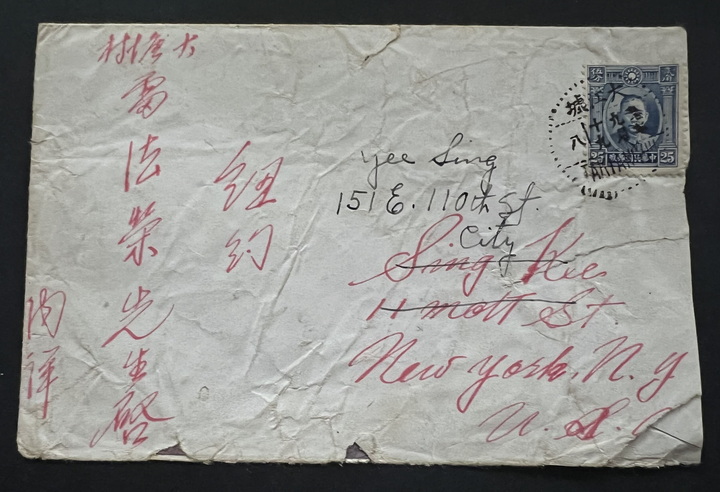 大唐樹
雷法榮先生啓
紐約
內詳
Yee Sing
151 E. 110th St.
City
Sing Kee
11 Mott St
New York, N. Y
U. S.
大江墟
十九
八
25 中華民國郵政 25